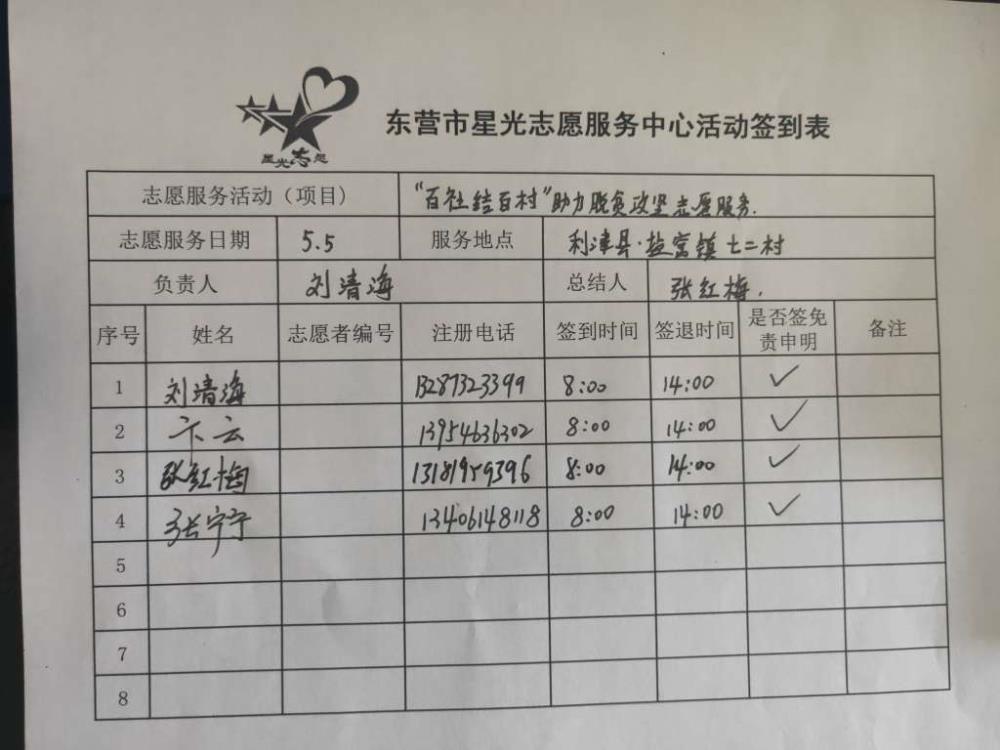 星光志愿
东营市星光志愿服务中心活动签到表
志愿服务活动（项目） “百社结百村”助力脱贫攻坚志愿服务.
志愿服务日期 5.5 服务地点 利津县·盐窝镇七二村
负责人 刘清海 总结人 张红梅.
序号 姓名 志愿者编号 注册电话 签到时间 签退时间 是否签免责申明 备注
1 刘清海 13287323399 8:00 14:00 ✓
2 卞云 13954636302 8:00 14:00 ✓
3 张红梅 13181959396 8:00 14:00 ✓
4 张宁宁 13406148118 8:00 14:00 ✓
5
6
7
8